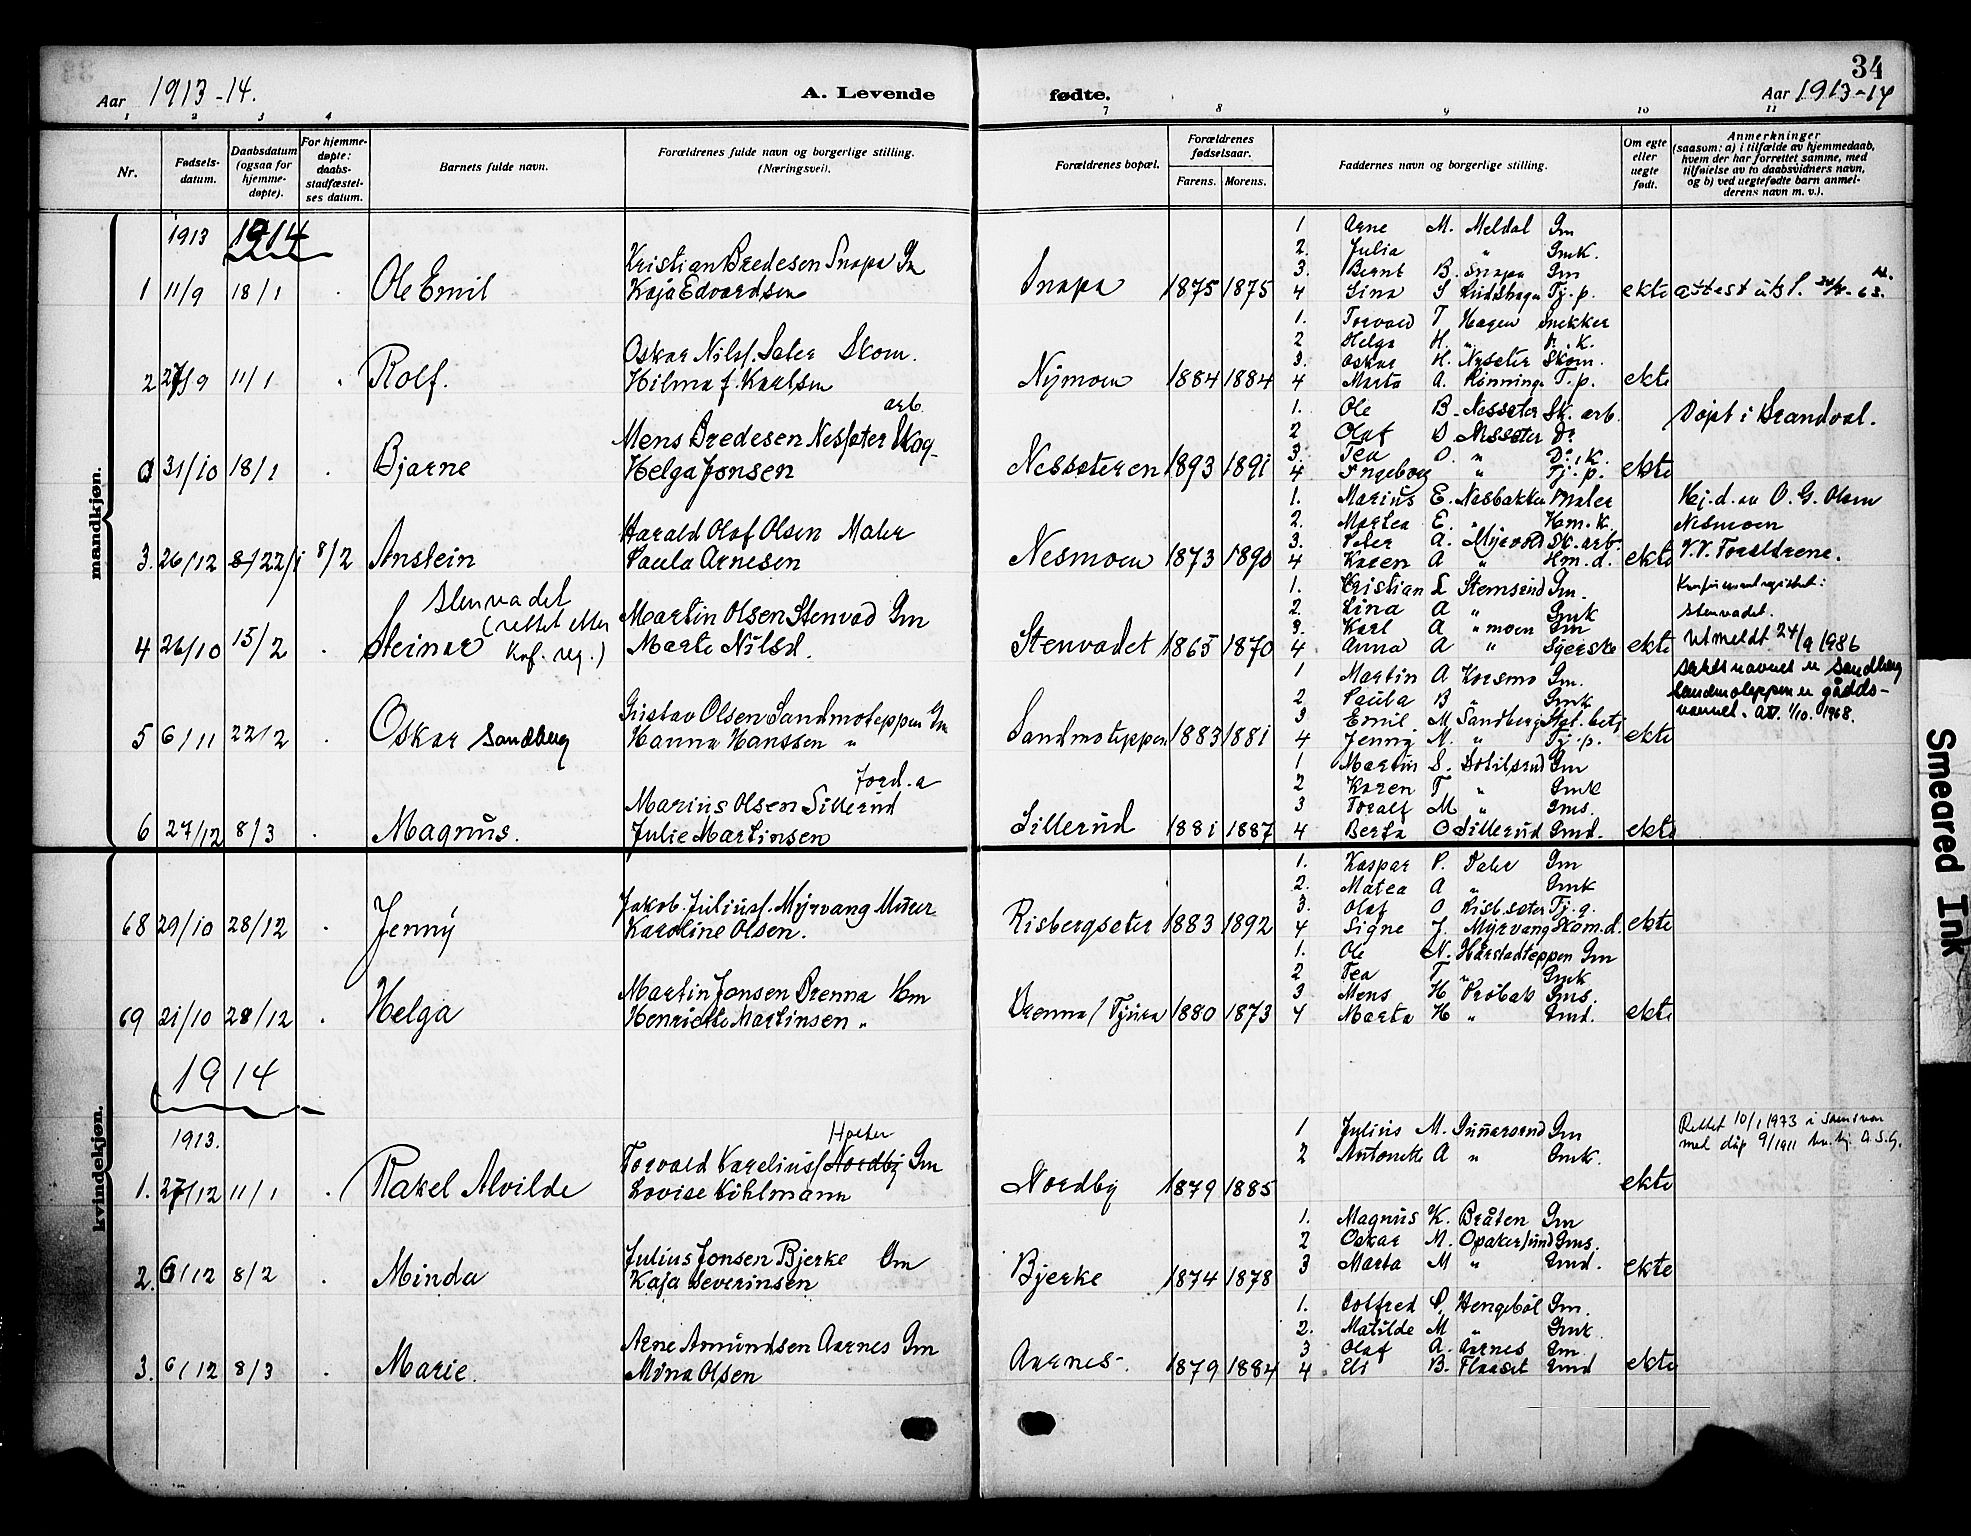 34
Aar 1913-14. A. Levende fødte. Aar 1913-14
1 2 3 4 7 8 9 10 11
Nr.
Fødsels-
datum.
Daabsdatum
(ogsaa for
hjemme-
døpte).
For hjemme-
døpte:
daabs-
stadfæstel-
ses datum.
Barnets fulde navn.
Forældrenes fulde navn og borgerlige stilling.
(Næringsvei).
Forældrenes bopæl.
Forældrenes
fødselsaar.
Farens. Morens.
Faddernes navn og borgerlige stilling.
Om egte
eller
uegte
født.
Anmerkninger
(saasom: a) i tilfælde av hjemmedaab,
hvem der har forrettet samme, med
tilføielse av to daabsvidners navn,
og b) ved uegtefødte barn anmel-
derens navn m. v.).
mandkjøn.
1913 1914
1 11/9 18/1 Ole Emil
Kristian Bredesen Snapa Gm
Kaja Edvardsen
Snapa 1875 1875
1 Arne M. Meldal Gm
2. Julia " Gmk.
3. Bernt B. Snapa Gm
4 Gina S Tj. p.
ekte attest
2 27/9 11/1 Rolf.
Oskar Nilss. Sæter Skom.
Hilma f. Karlsen
Nymoen 1884 1884
1. Torvald T Hagen Snekker
2 Helga H. "
3. Oskar H. Nyseter Skom.
4 Marta A. Rønninge T. p.
ekte
0 31/10 18/1 Bjarne
arb.
Mens Bredesen Nesseter Skog-
Helga Jonsen
Nesseteren 1893 1891
1. Ole B. Nesseter Sk. arb.
2 Olaf Nesseter Do
3. Tea O. " Do. K.
4 Ingeborg " Tj. p.
ekte Døpt i Brandval.
3. 26/12 22/1 8/2 Anstein
Harald Olaf Olsen Maler
Paula Arnesen
Nesmoen 1873 1890
1. Marius E. Nesbakken Maler
2. Martea E. " Hm. k.
3. Peter A. Myrvold Sk. arb.
4 Karen A. " Hm. d.
ekte
Hj. d. av O. G. Olsen
Nesmoen
V.V. Foreldrene.
4 26/10 15/2 Steinar
Stenvadet
(rettet etter
Konf. reg.)
Martin Olsen Stenvad Gm
Marte Nilsd.
Stenvadet 1865 1870
1. Kristian L Stemsrud Gm.
2. Lina A " Gmk
3. Karl A " moen Gm
4 Anna A "
ekte
Stenvadet.
Utmeldt 24/9 1986
5 6/11 22/2 Oskar Sandberg
Gustav Olsen Sandmoteppen Gm
Hanna Hanssen "
Sandmoteppen 1883 1881
1 Martin A Korsmo Gm.
2 Paula B " Gmk
3 Emil M Sandberg
4 Jenny M. " Tj. p.
ekte
Slektsnavnet er Sandberg
Sandmoteppen er gårds-
navnet. 1/10. 1968.
6 27/12 8/3 Magnus.
Jord. a
Marius Olsen Sillerud
Julie Martinsen
Sillerud 1881 1887
1 Martin S. Gm
2 Karen T " Gmk
3 Toralf M " Gms.
4 Berta O Sillerud Gmd.
ekte
kvindekjøn.
68 29/10 28/12 Jenny
Jakob Juliuss. Myrvang Murer
Karoline Olsen.
Risbergseter 1883 1892
1. Kaspar P. Daler Gm
2. Matea A " Gmk
3. Olaf O Risb.sæter Tj. g.
4 Signe J. Myrvang Skom. d.
ekte
69 21/10 28/12 Helga
Martin Jonsen Brenna Hm
Henriette Martinsen "
Brenna/Tjura 1880 1873
1. Ole N. Harstadteppen Gm
2 Tea T. " Gmk
3 Mens H Gms.
4 Marta H " Gmd.
ekte
1914
1913.
1. 27/12 11/1 Rakel Alvilde
Holter
Torvald Kareliuss. Nordby Gm
Lovise Kihlmann
Nordby 1879 1885
1 Julius M. Gunnarsrud Gm
2 Antonette A " Gmk.
ekte
Rettet 10/1 1973 i samsvar
med dåp 9/1911
2. 6/12 8/2 Minda
Julius Jonsen Bjerke Gm
Kaja Severinsen
Bjerke 1874 1878
1. Magnus K. Bråten Gm
2 Oskar M. Opakersund Gms.
3 Marta M " Gmd.
ekte
3. 6/12 8/3 Marie.
Arne Amundsen Aarnes Gm
Mina Olsen
Aarnes. 1879 1884
1. Hengebøl Gm.
2. Matilde M " Gmk.
3 Olaf A. Aarnes Gm
4 Eli B. Flaaset Gmd
ekte
Smeared Ink